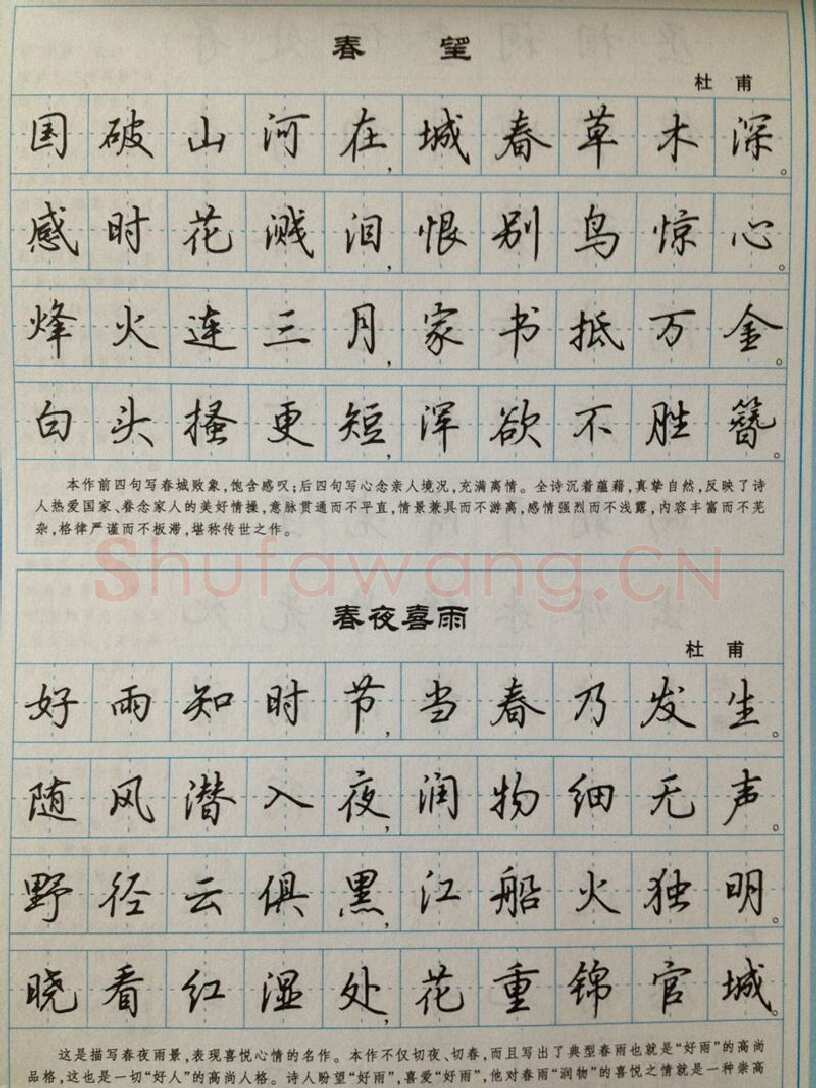 春 望
杜 甫
国破山河在,城春草木深。
感时花溅泪,恨别鸟惊心。
烽火连三月,家书抵万金。
白头搔更短,浑欲不胜簪。
本作前四句写春城败象,饱含感叹;后四句写心念亲人境况,充满离情。全诗沉着蕴藉,真挚自然,反映了诗
人热爱国家、眷念家人的美好情操,意脉贯通而不平直,情景兼具而不游离,感情强烈而不浅露,内容丰富而不芜
杂,格律严谨而不板滞,堪称传世之作。
Shufawang.CN
春夜喜雨
杜 甫
好雨知时节,当春乃发生。
随风潜入夜,润物细无声。
野径云俱黑,江船火独明。
晓看红湿处,花重锦官城。
这是描写春夜雨景,表现喜悦心情的名作。本作不仅切夜、切春,而且写出了典型春雨也就是“好雨”的高尚
品格,这也是一切“好人”的高尚人格。诗人盼望“好雨”,喜爱“好雨”,他对春雨“润物”的喜悦之情就是一种崇高